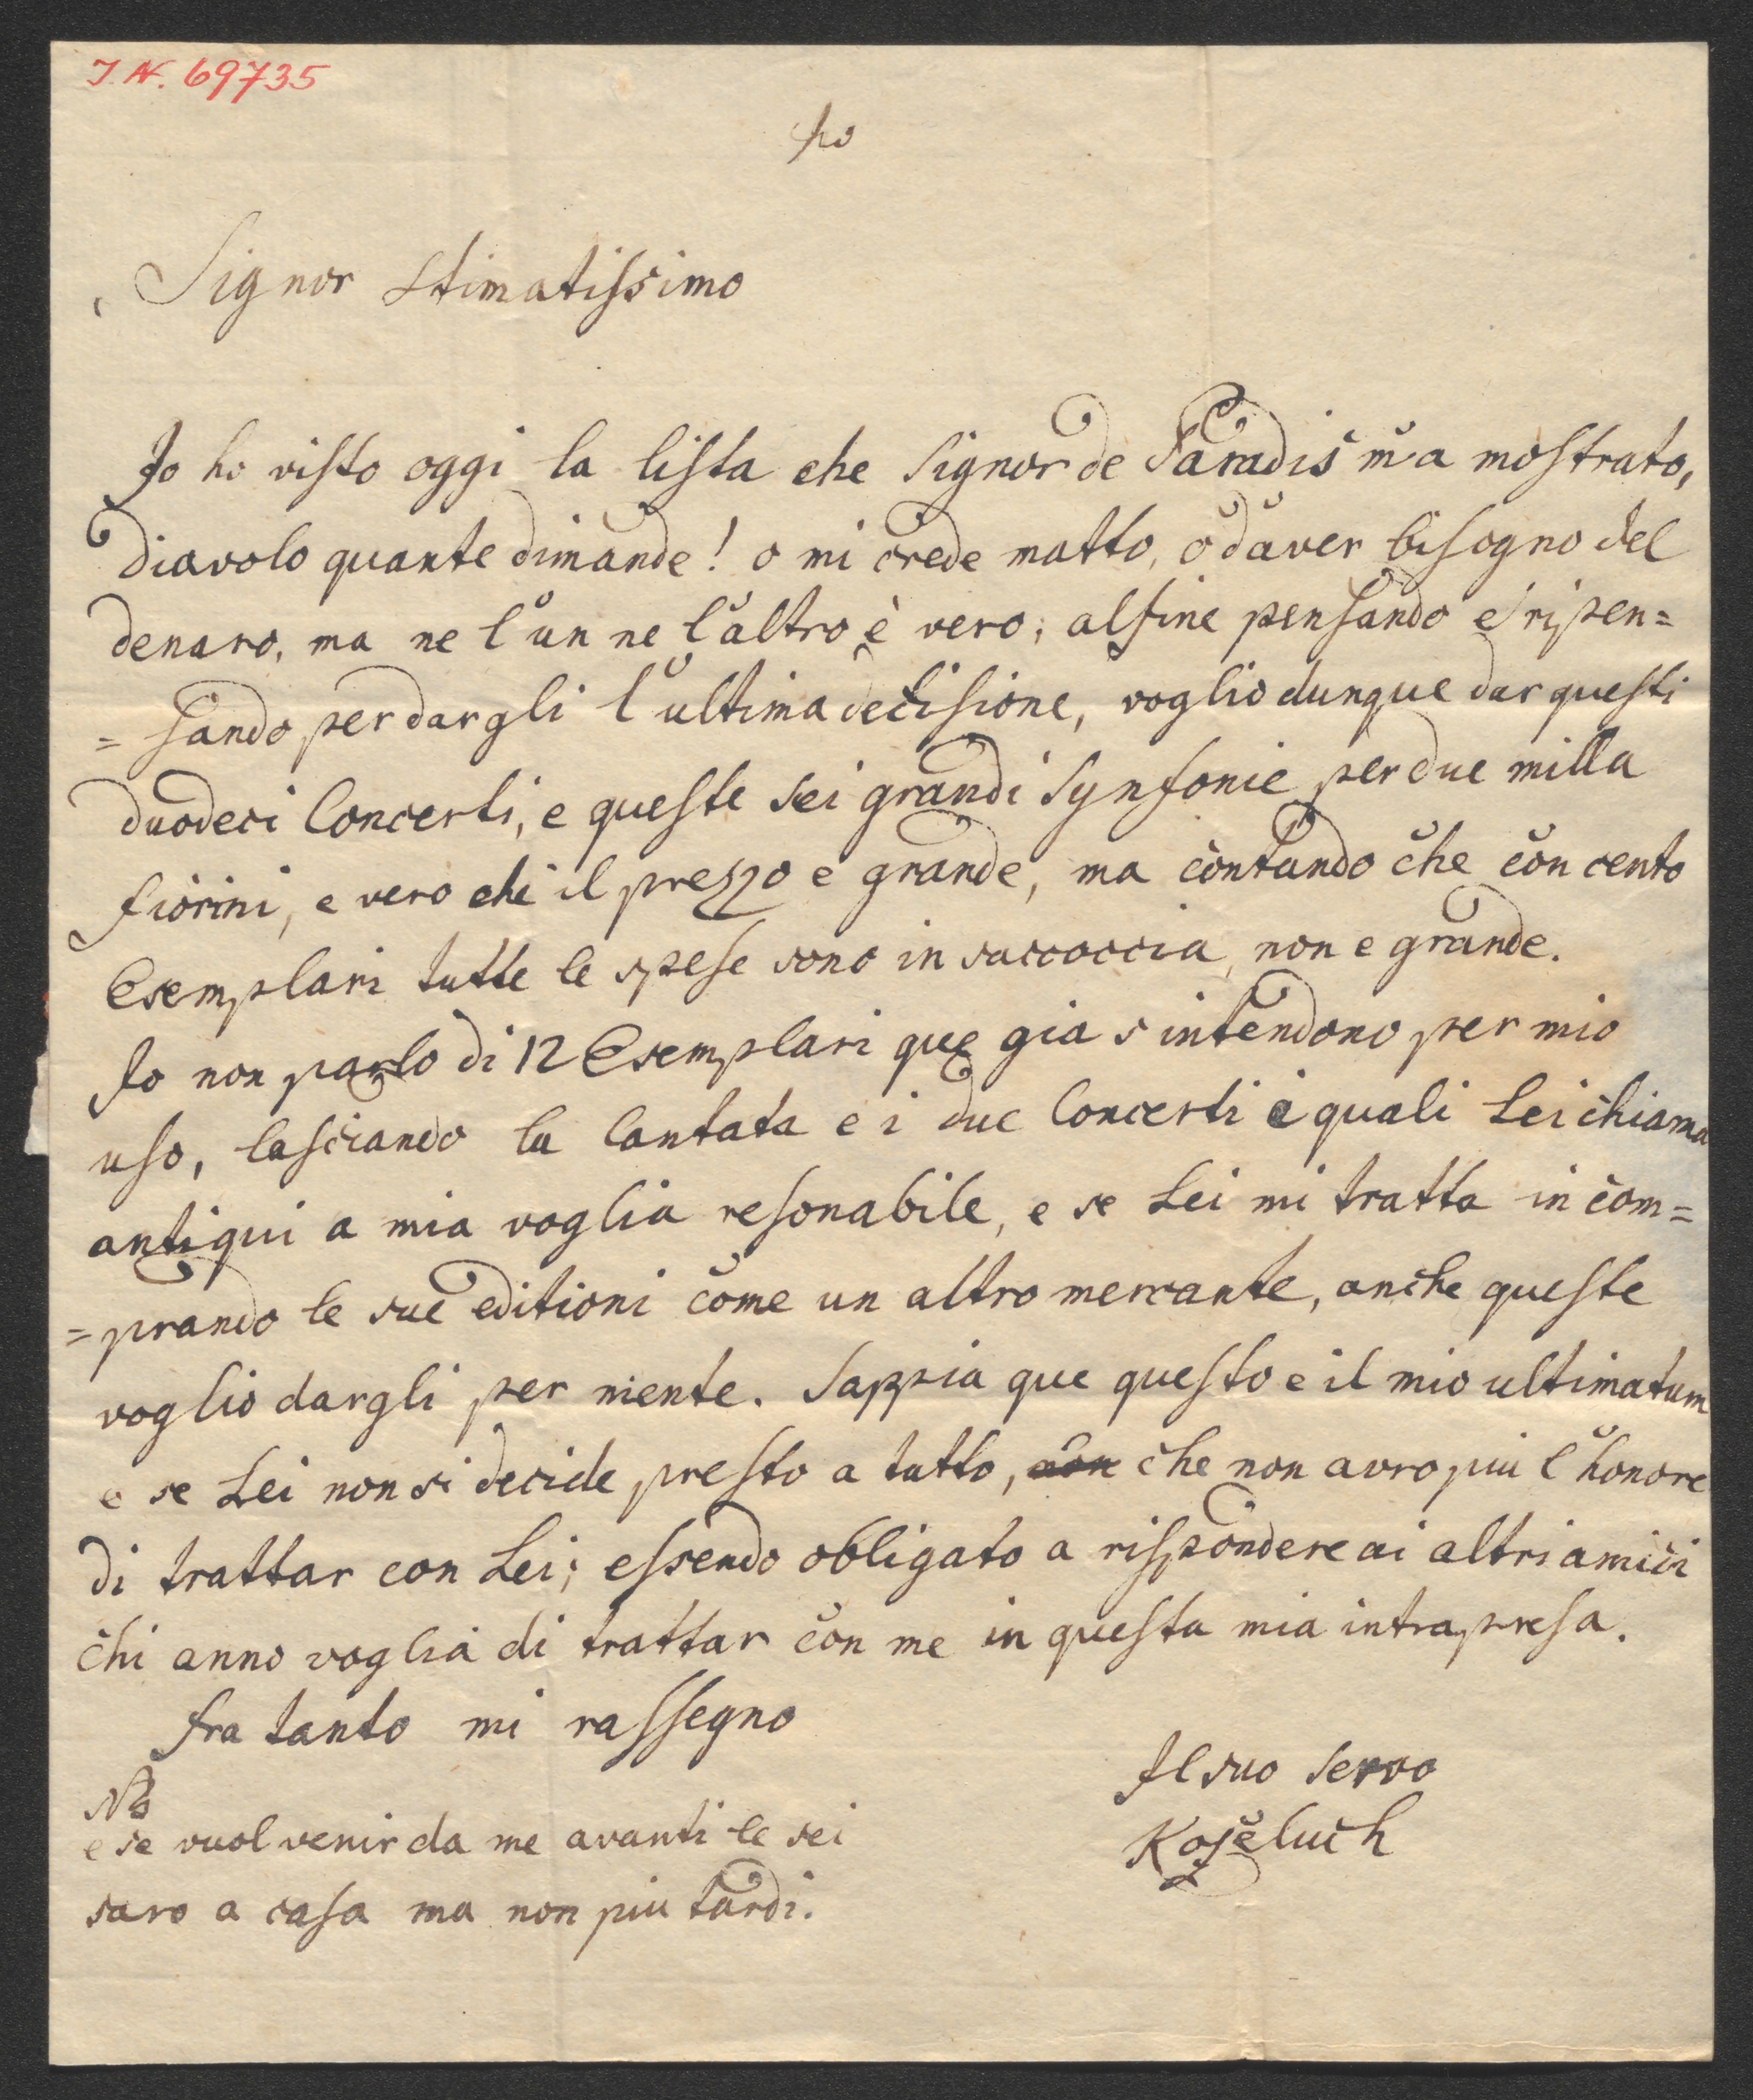 I. N. 69735
Signor stimatissimo
Io ho visto oggi la lista che Signor de Paradis m'a mostrato,
diavolo quante dimande! o mi crede matto, o d'aver bisogno del
denaro, ma ne l'un ne l'altro è vero; alfine pensando e ripen=
=sando per dargli l'ultima decisione, voglio dunque dar questi
duodeci Concerti, e queste sei grandi Synfonie per due milla
fiorini, e vero che il prezzo e grande, ma contando che con cento
Esemplari tutte le spese sono in saccoccia, non e grande.
Io non parlo di 12 Esemplari que gia s'intendono per mio
uso, lasciando la Cantata e i due Concerti i quali Lei chiama
antiqui a mia voglia resonabile, e se Lei mi tratta in com=
=prando le sue editioni come un altro mercante, anche queste
voglio dargli per niente. Sappia que questo e il mio ultimatum
e se Lei non si decide presto a tutto, che non avro piu l'honore
di trattar con Lei; essendo obligato a rispondere ai altri amici
chi anno voglia di trattar con me in questa mia intrapresa.
fra tanto mi rassegno
Il suo servo
Koželuch
NB
e se vuol venir da me avanti le sei
saro a casa ma non piu tardi.